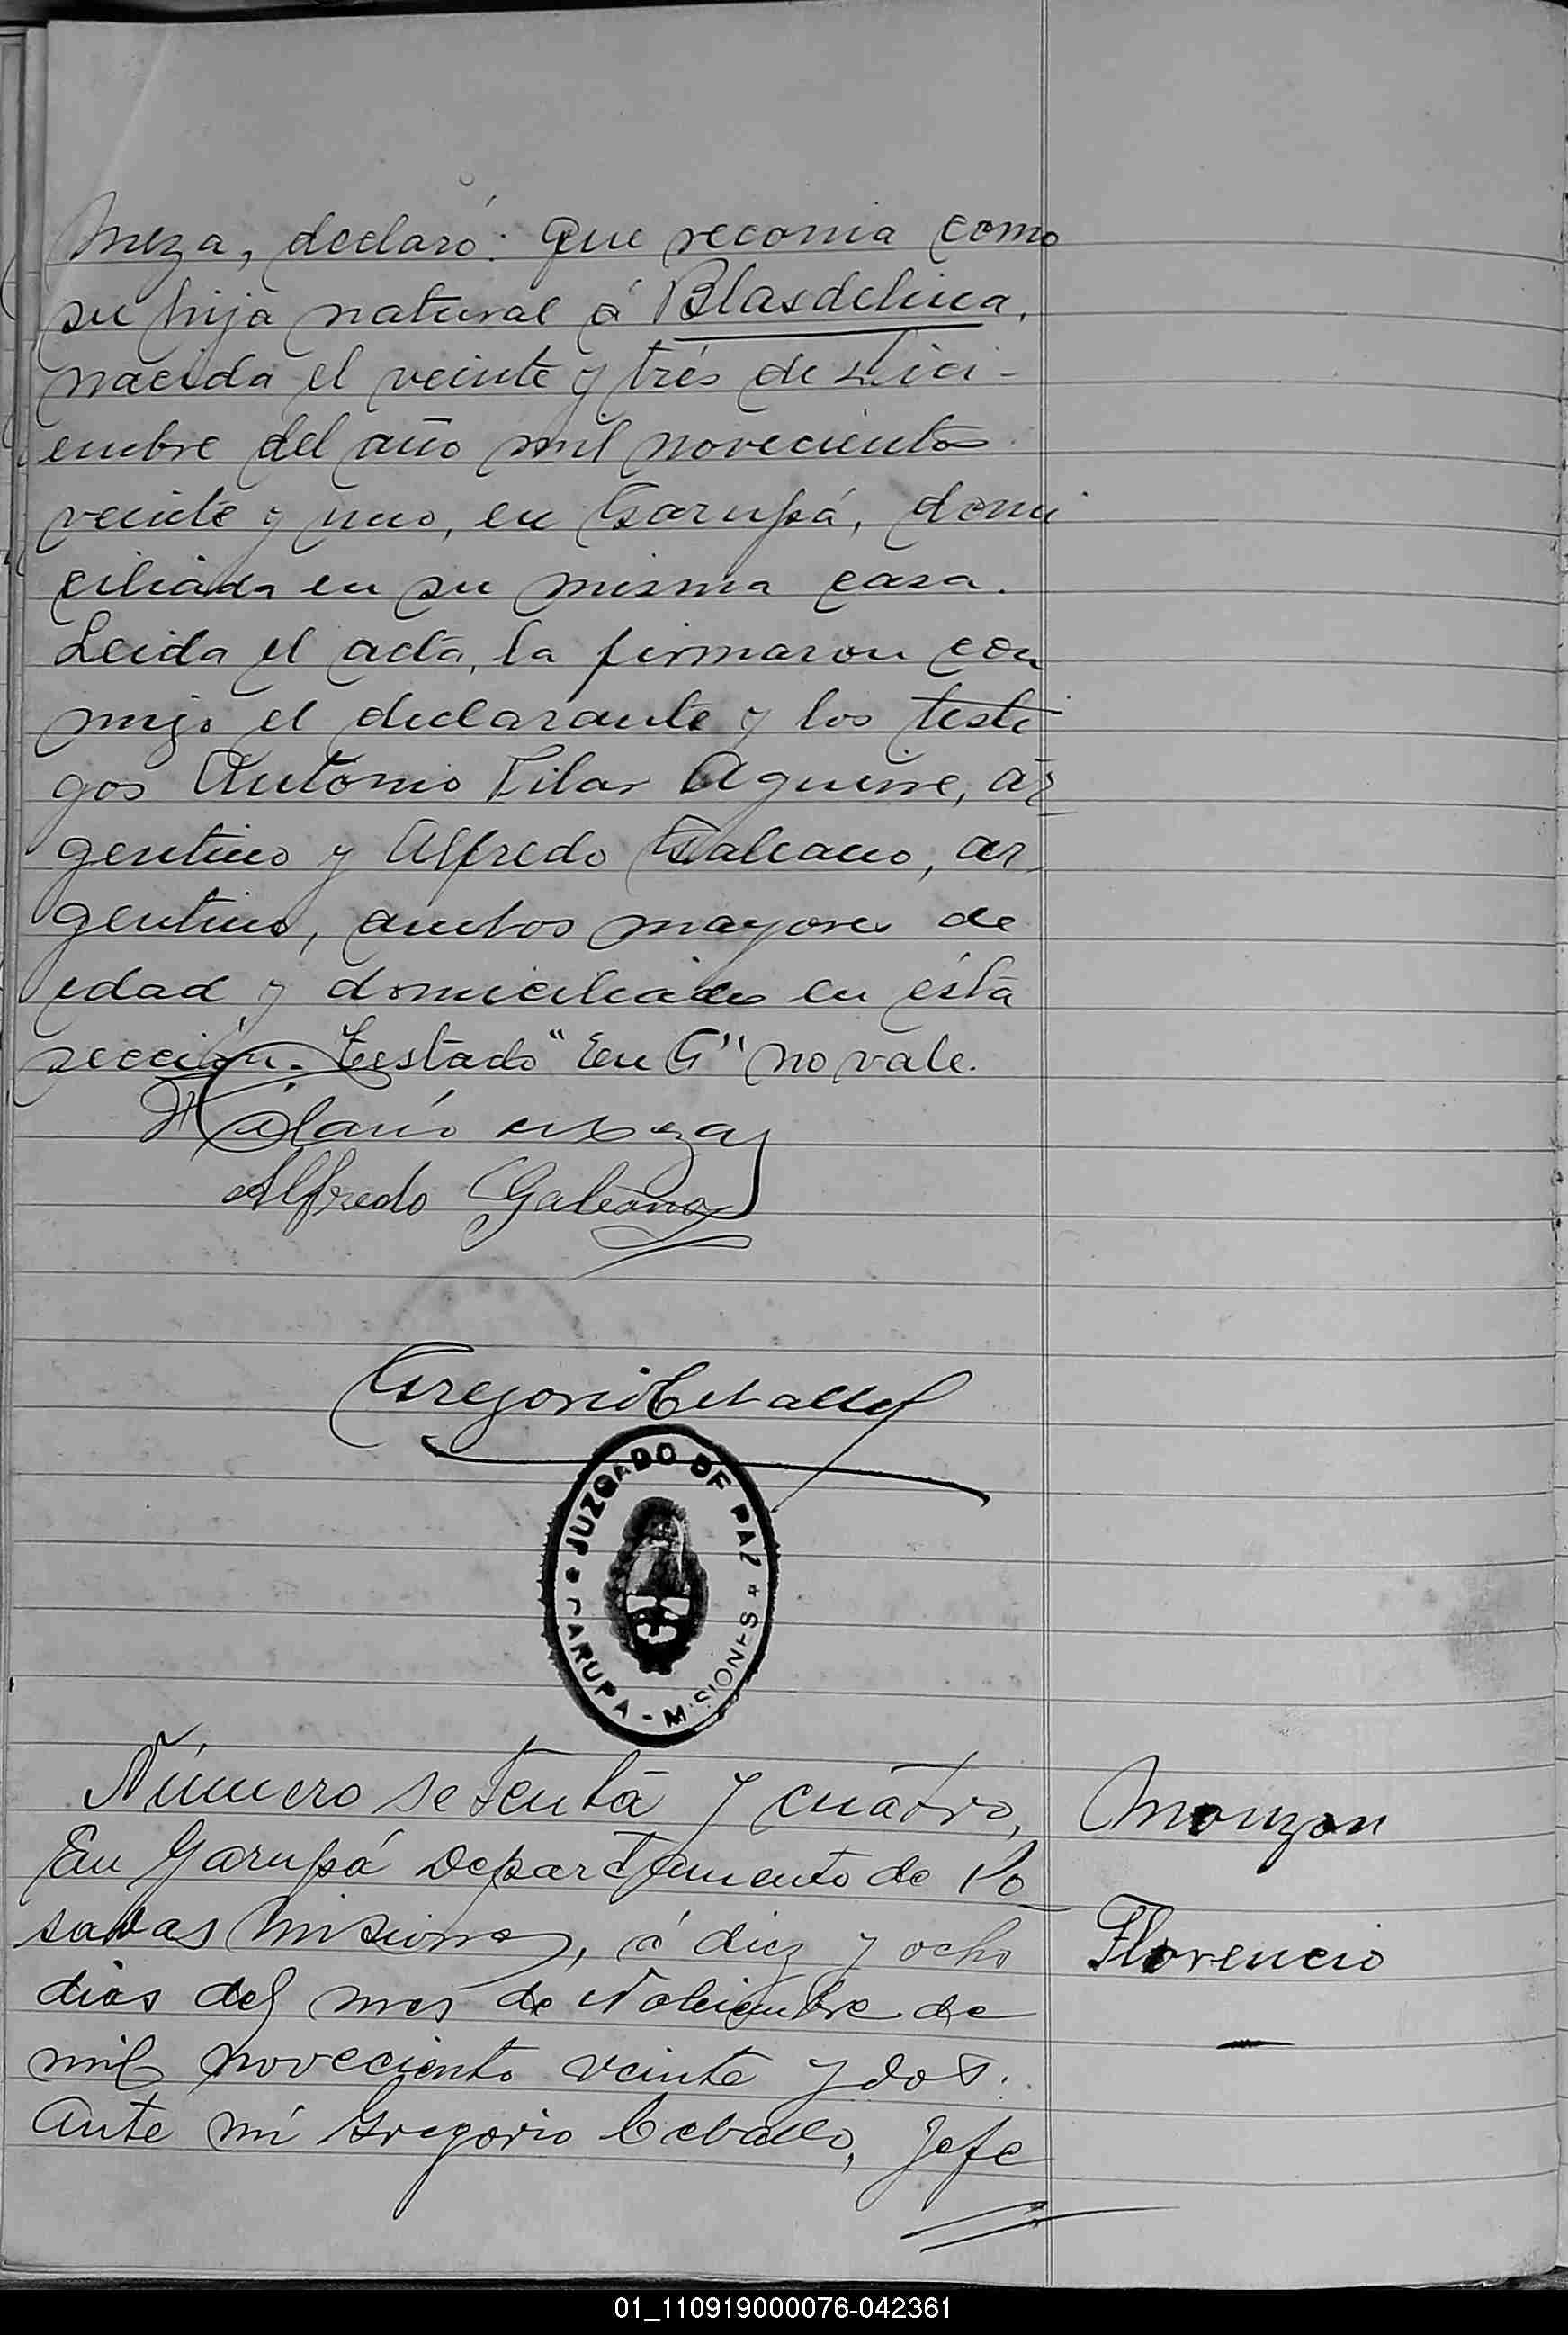 Meza, declaró: Que reconia como
su hija natural á Blasdelina,
nacida el veinte y trés de Dici-
embre del año mil novecientos
veinte y uno, en Garupá, domi
ciliada en su misma casa.
Leida el acta, la firmaron con
migo el declarante y los testi
gos Antonio Pilar Aguirre, ar
gentino y Alfredo Galeano, ar
gentino, ambos mayores de
edad y domiciliados en ésta
sección. Testado "En G" no vale.
Hilario Meza
Alfredo Galeano
Gregorio Ceballo
JUZGADO DE PAZ
GARUPA - MISIONES
Número setenta y cuatro,
En Garupá Departamento de Po
sadas Misiones, á diez y ocho
dias del mes de Nobiembre de
mil noveciento veinte y dos.
Ante mí Gregorio Ceballo, Jefe
Monzon
Florencio
01_110919000076-042361